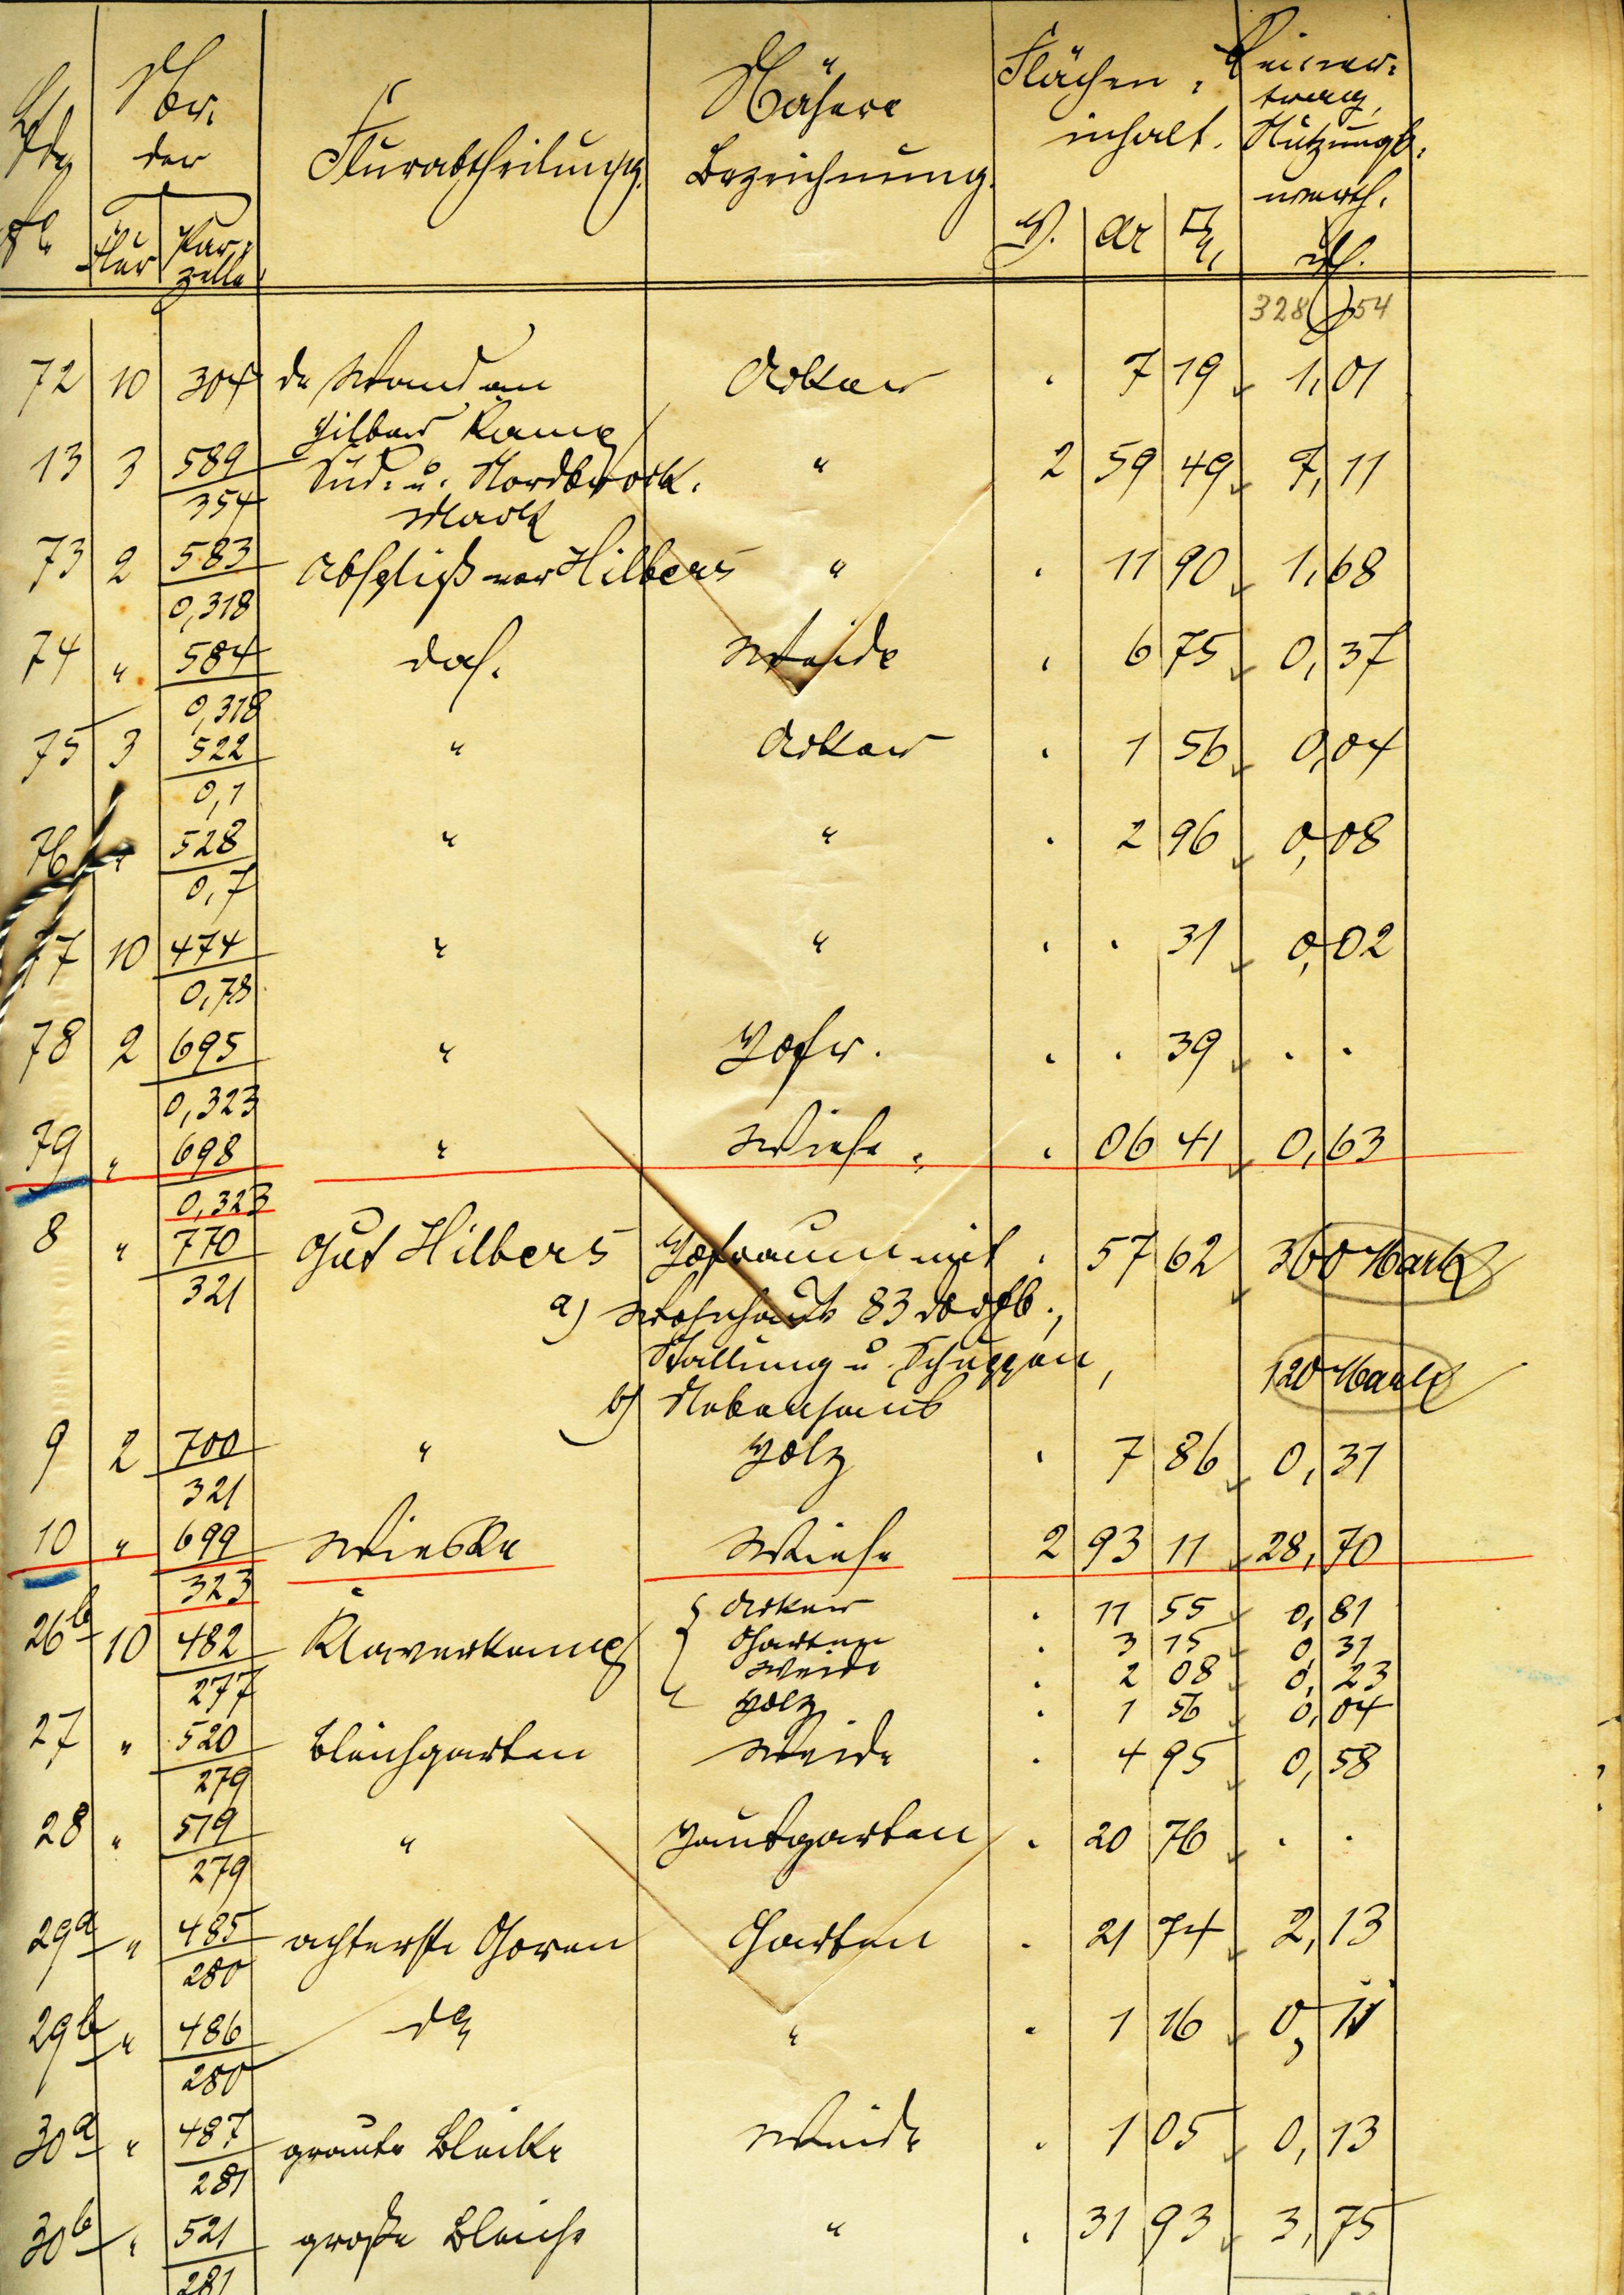 Lfde № Nr. der Flur Parzelle Flurabtheilung. Nähere Bezeichnung. Flächeninhalt. H. Ar □M. Reinertrag, Nutzungswerth. M.
328 54
72 10 304 de Wand am Acker . 7 19 1,01
Hilbers Kamp
13 3 589/354 Süd- u. Nordbrock- " 2 59 49 7,11
Mark
73 2 583/0,318 Abspliß von Hilbers " . 11 90 1,68
74 " 584/0,318 das. Weide . 6 75 0,37
75 3 522/0,1 " Acker . 1 56 0,04
76 " 528/0,7 " " . 2 96 0,08
77 10 474/0,78 " " . . 31 0,02
78 2 695/0,323 " Hofr. . . 39 . .
79 " 698/0,323 " Wiese . 06 41 0,63
8 " 770/321 Gut Hilbers Hofraum mit . 57 62 360 Mark
a) Wohnhaus 83 Dorfb.,
Stallung u. Schuppen,
b) Nebenhaus 120 Mark
9 2 700/321 " Holz . 7 86 0,31
10 " 699/323 Wieske Wiese 2 93 11 28,70
26b 10 482/277 Klaverkamp Acker . 11 55 0,81
Garten . 3 15 0,31
Weide . 2 08 0,23
Holz . 1 56 0,04
27 " 520/279 Bleichgarten Weide . 4 95 0,58
28 " 519/279 " Hausgarten . 20 76 . .
29a " 485/280 achterste Goren Garten . 21 74 2,13
29b " 486/280 do " . 1 16 0,11
30a " 487/281 graute Bleike Weide . 1 05 0,13
30b " 521/281 große Bleiche " . 31 93 3,75